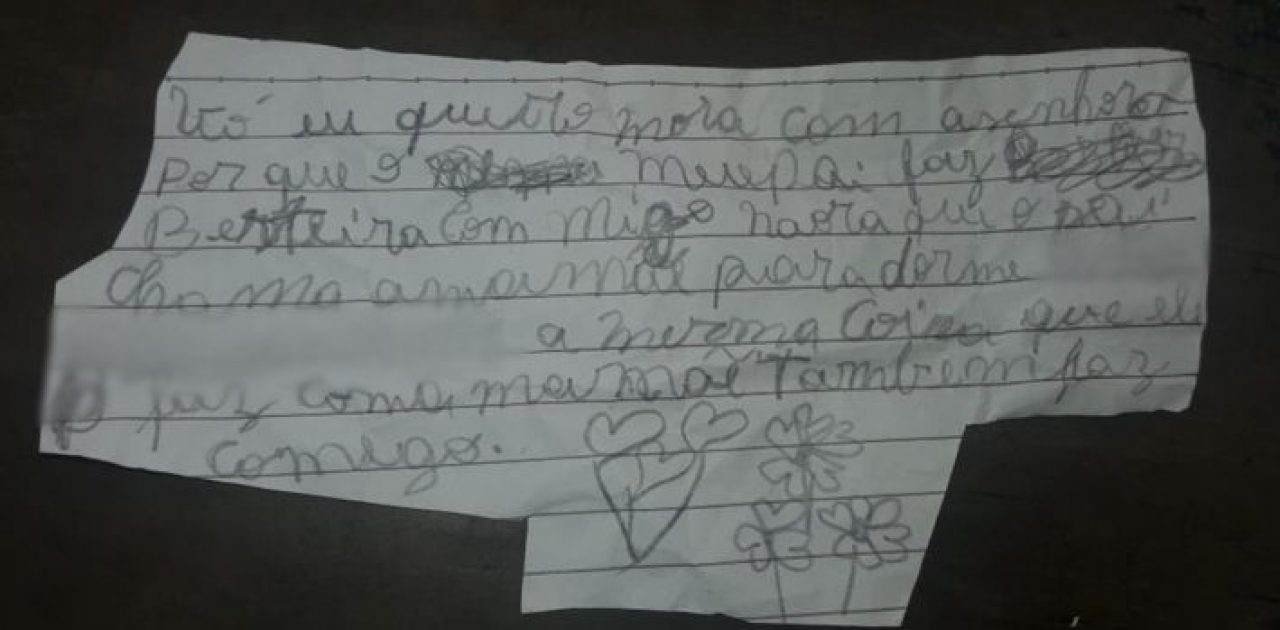 Vó eu quero mora com asenhora
Porque o meu pai faz
Besteira com migo naora que o pai
chama a mamãe para dorme
a mesma coisa que ele
faz com a mamãe Também faz
comigo.